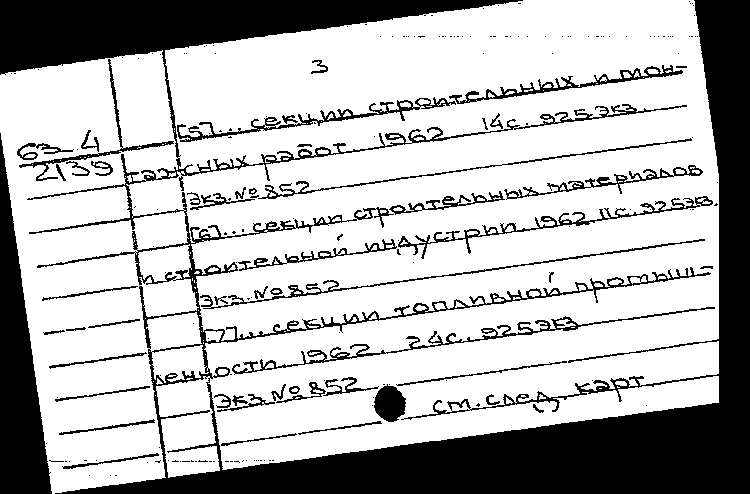 3
63-4
2139
[5]... секции строительных и мон-
тажных работ. 1962 14с. 925 экз.
Экз. № 852
[6]... секции строительных материалов
и строительной индустрии. 1962. 11с. 925 экз.
Экз. № 852
[7]... секции топливной промыш-
ленности. 1962. 24с. 925 экз
Экз. № 852
см. след. карт